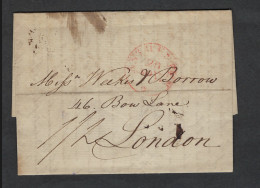 Messrs Weekes & Borrow
46 Bow Lane
1/2 London